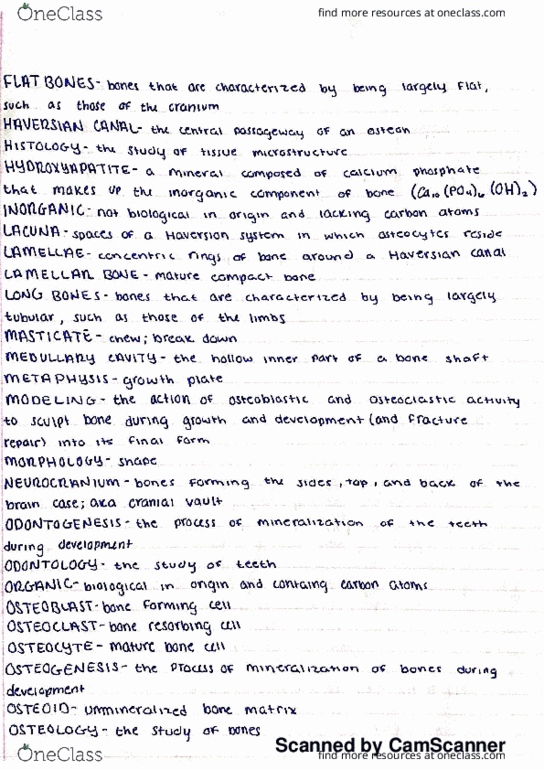 OneClass
find more resources at oneclass.com
FLAT BONES- bones that are characterized by being largely flat,
such as those of the cranium
HAVERSIAN CANAL- the central passageway of an osteon
HISTOLOGY- the study of tissue microstructure
HYDROXYAPATITE- a mineral composed of calcium phosphate
that makes up the inorganic component of bone (Ca10 (PO4)6 (OH)2)
INORGANIC- not biological in origin and lacking carbon atoms
LACUNA- spaces of a Haversion system in which osteocytes reside
LAMELLAE- concentric rings of bone around a Haversian canal
LAMELLAR BONE- mature compact bone
LONG BONES- bones that are characterized by being largely
tubular, such as those of the limbs
MASTICATE- chew; break down
MEDULLARY CAVITY- the hollow inner part of a bone shaft
METAPHYSIS- growth plate
MODELING- the action of osteoblastic and osteoclastic activity
to sculpt bone during growth and development (and fracture
repair) into its final form
MORPHOLOGY- shape
NEUROCRANIUM- bones forming the sides, top, and back of the
brain case; aka cranial vault
ODONTOGENESIS- the process of mineralization of the teeth
during development
ODONTOLOGY- the study of teeth
ORGANIC- biological in origin and containg carbon atoms
OSTEOBLAST- bone forming cell
OSTEOCLAST- bone resorbing cell
OSTEOCYTE- mature bone cell
OSTEOGENESIS- the process of mineralization of bones during
development
OSTEOID- unmineralized bone matrix
OSTEOLOGY- the study of bones
Scanned by CamScanner
OneClass
find more resources at oneclass.com